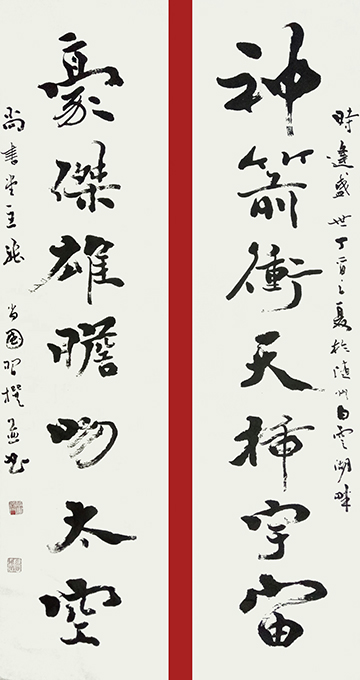 時逢盛世丁酉之夏於隨州白雲湖畔
神箭衝天插宇宙
豪傑雄膽吻太空
尚書堂主張 國習撰並書